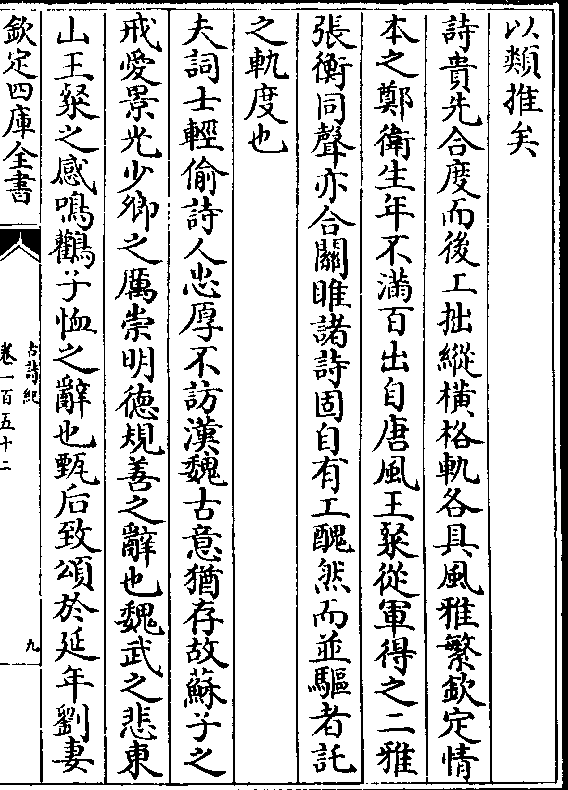 以類推矣
詩貴先合度而後工拙縱橫格軌各具風雅繁欽定情
本之鄭衛生年不滿百出自唐風王粲從軍得之二雅
張衡同聲亦合關雎諸詩固自有工醜然而並驅者託
之軌度也
夫詞士輕偷詩人忠厚不訪漢魏古意猶存故蘇子之
戒愛景光少卿之厲崇明德規善之辭也魏武之悲東
山王粲之感鳴鸛子恤之辭也甄后致頌於延年劉妻
欽定四庫全書
古詩紀
卷一百五十二
九